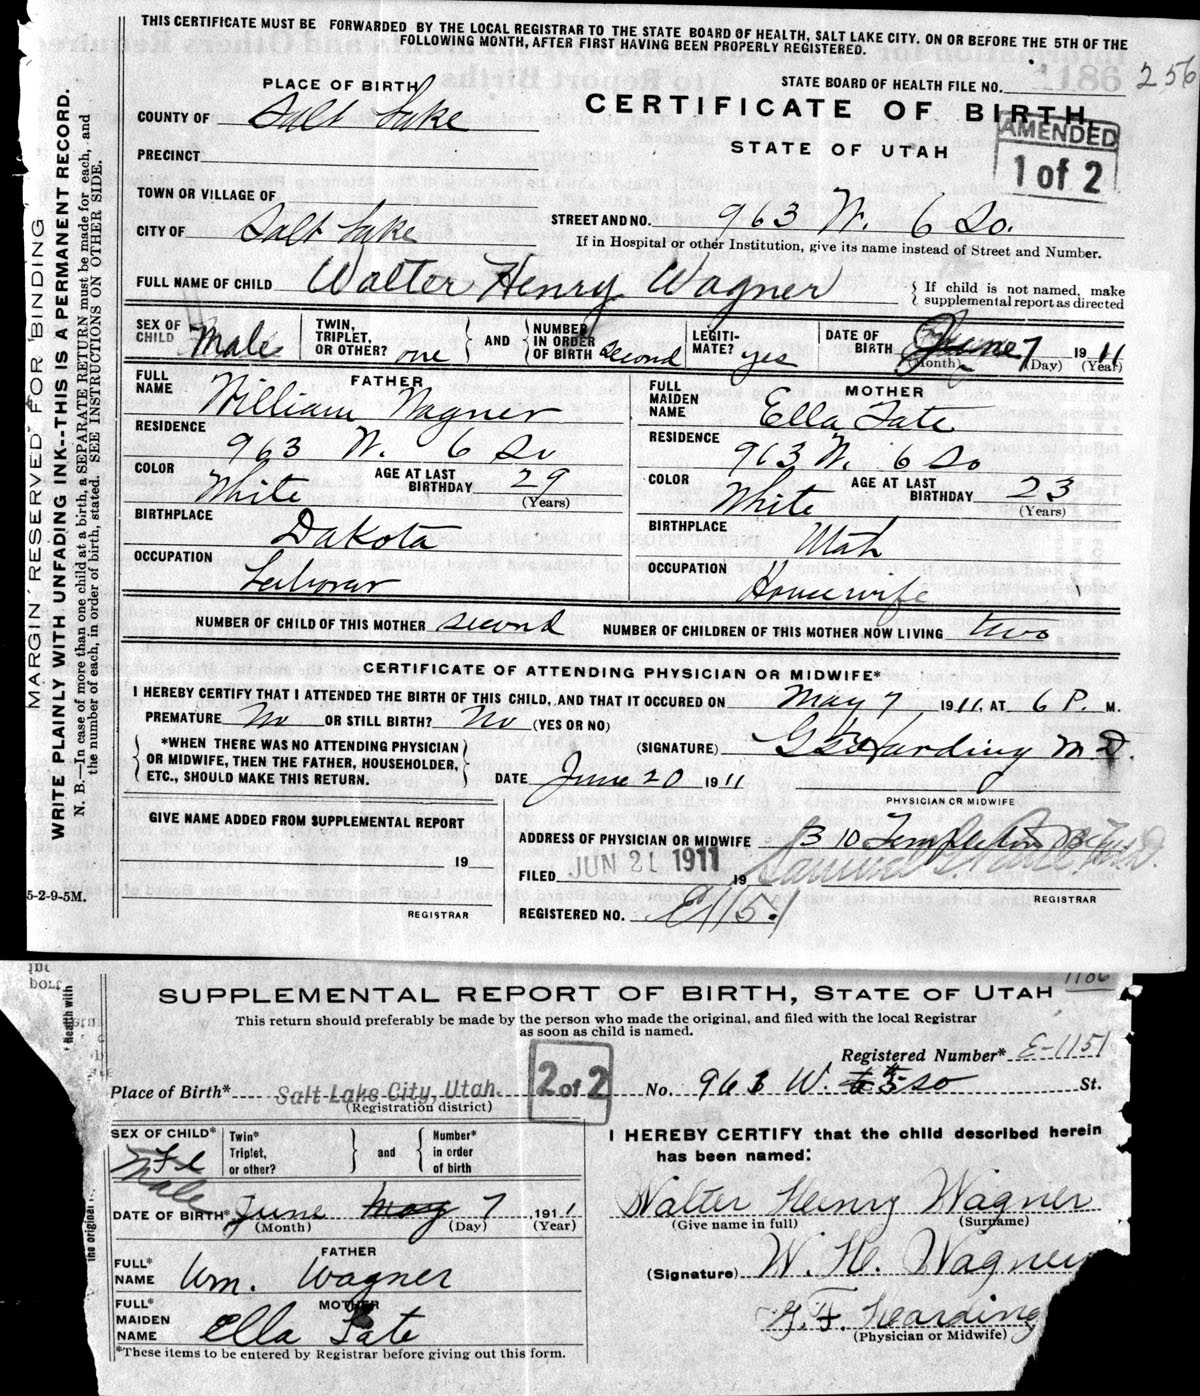 THIS CERTIFICATE MUST BE FORWARDED BY THE LOCAL REGISTRAR TO THE STATE BOARD OF HEALTH, SALT LAKE CITY, ON OR BEFORE THE 5TH OF THE
FOLLOWING MONTH, AFTER FIRST HAVING BEEN PROPERLY REGISTERED.
STATE BOARD OF HEALTH FILE NO. 256
PLACE OF BIRTH
CERTIFICATE OF BIRTH
AMENDED
1 of 2
COUNTY OF Salt Lake
STATE OF UTAH
PRECINCT
TOWN OR VILLAGE OF
STREET AND NO. 963 W. 6 So.
CITY OF Salt Lake
If in Hospital or other Institution, give its name instead of Street and Number.
FULL NAME OF CHILD Walter Henry Wagner
{ If child is not named, make
supplemental report as directed
SEX OF CHILD Male
TWIN, TRIPLET, OR OTHER? one
AND
NUMBER IN ORDER OF BIRTH Second
LEGITIMATE? yes
DATE OF BIRTH June 7 1911
(Month) (Day) (Year)
FATHER
FULL NAME William Wagner
RESIDENCE 963 W. 6 So
COLOR White
AGE AT LAST BIRTHDAY 29
(Years)
BIRTHPLACE Dakota
OCCUPATION Laborar
MOTHER
FULL MAIDEN NAME Ella Tate
RESIDENCE 963 W. 6 So
COLOR White
AGE AT LAST BIRTHDAY 23
(Years)
BIRTHPLACE Utah
OCCUPATION Housewife
NUMBER OF CHILD OF THIS MOTHER second NUMBER OF CHILDREN OF THIS MOTHER NOW LIVING two
CERTIFICATE OF ATTENDING PHYSICIAN OR MIDWIFE*
I HEREBY CERTIFY THAT I ATTENDED THE BIRTH OF THIS CHILD, AND THAT IT OCCURED ON May 7 1911, AT 6 P. M.
PREMATURE No OR STILL BIRTH? No (YES OR NO)
*WHEN THERE WAS NO ATTENDING PHYSICIAN
OR MIDWIFE, THEN THE FATHER, HOUSEHOLDER,
ETC., SHOULD MAKE THIS RETURN.
(SIGNATURE) Harding M.D.
DATE June 20 1911
PHYSICIAN OR MIDWIFE
GIVE NAME ADDED FROM SUPPLEMENTAL REPORT
19
REGISTRAR
ADDRESS OF PHYSICIAN OR MIDWIFE 310 Templeton
FILED JUN 21 1911 19
REGISTRAR
REGISTERED NO.
MARGIN RESERVED FOR BINDING
WRITE PLAINLY WITH UNFADING INK--THIS IS A PERMANENT RECORD.
N. B.—In case of more than one child at a birth, a SEPARATE RETURN must be made for each, and
the number of each, in order of birth, stated. SEE INSTRUCTIONS ON OTHER SIDE.
5-2-9-5M.
SUPPLEMENTAL REPORT OF BIRTH, STATE OF UTAH
This return should preferably be made by the person who made the original, and filed with the local Registrar
as soon as child is named.
Registered Number* E-1151
Place of Birth* Salt Lake City, Utah.
(Registration district)
2 of 2
No. 963 W. So St.
SEX OF CHILD* Male
Twin* Triplet, or other?
and
Number* in order of birth
DATE OF BIRTH* June May 7 1911
(Month) (Day) (Year)
FATHER
FULL* NAME Wm. Wagner
MOTHER
FULL* MAIDEN NAME Ella Tate
*These items to be entered by Registrar before giving out this form.
I HEREBY CERTIFY that the child described herein
has been named:
Walter Henry Wagner
(Give name in full) (Surname)
(Signature) W. H. Wagner
Harding
(Physician or Midwife)